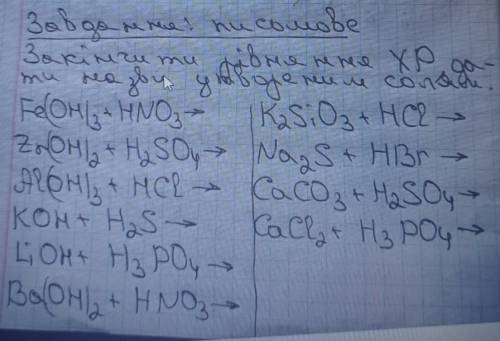 Завдання: письмове
Закінчити рівняння ХР да-
ти назви утвореним солям.
Fe(OH)₃ + HNO₃ →
Zn(OH)₂ + H₂SO₄ →
Al(OH)₃ + HCl →
KOH + H₂S →
LiOH + H₃PO₄ →
Ba(OH)₂ + HNO₃ →
K₂SiO₃ + HCl →
Na₂S + HBr →
CaCO₃ + H₂SO₄ →
CaCl₂ + H₃PO₄ →